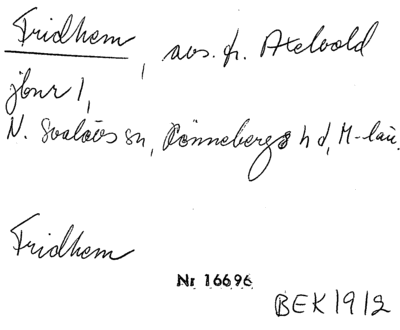 Fridhem, avs. fr. Axelvold
jbnr 1,
N. Svalövs sn, Rönnebergs hd, M-län.
Fridhem
Nr 16696
BEK 1912